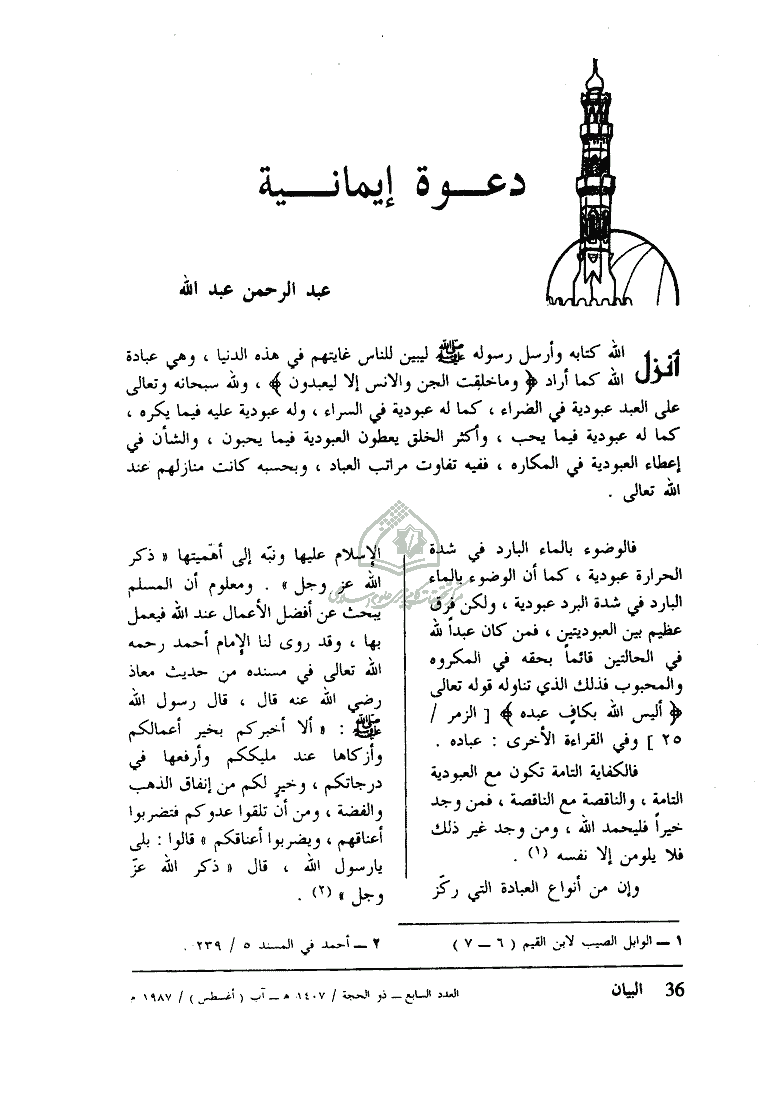 دعوة إيمانية
عبد الرحمن عبد الله
أنزل الله كتابه وأرسل رسوله ﷺ ليبين للناس غايتهم في هذه الدنيا ، وهي عبادة
الله كما أراد ﴿ وماخلقت الجن والانس إلا ليعبدون ﴾ ، ولله سبحانه وتعالى
على العبد عبودية في الضراء ، كما له عبودية في السراء ، وله عبودية عليه فيما يكره ،
كما له عبودية فيما يحب ، وأكثر الخلق يعطون العبودية فيما يحبون ، والشأن في
إعطاء العبودية في المكاره ، ففيه تفاوت مراتب العباد ، وبحسبه كانت منازلهم عند
الله تعالى .
فالوضوء بالماء البارد في شدة
الحرارة عبودية ، كما أن الوضوء بالماء
البارد في شدة البرد عبودية ، ولكن فرق
عظيم بين العبوديتين ، فمن كان عبداً لله
في الحالتين قائماً بحقه في المكروه
والمحبوب فذلك الذي تناوله قوله تعالى
﴿ أليس الله بكافٍ عبده ﴾ [ الزمر /
٢٥ ] وفي القراءة الأخرى : عباده .
فالكفاية التامة تكون مع العبودية
التامة ، والناقصة مع الناقصة ، فمن وجد
خيراً فليحمد الله ، ومن وجد غير ذلك
فلا يلومن إلا نفسه (١) .
وإن من أنواع العبادة التي ركّز
الإسلام عليها ونبّه إلى أهمّيتها « ذكر
الله عز وجل » . ومعلوم أن المسلم
يبحث عن أفضل الأعمال عند الله فيعمل
بها ، وقد روى لنا الإمام أحمد رحمه
الله تعالى في مسنده من حديث معاذ
رضي الله عنه قال ، قال رسول الله
ﷺ : « ألا أخبركم بخير أعمالكم
وأزكاها عند مليككم وأرفعها في
درجاتكم ، وخيرٍ لكم من إنفاق الذهب
والفضة ، ومن أن تلقوا عدوكم فتضربوا
أعناقهم ، ويضربوا أعناقكم » قالوا : بلى
يارسول الله ، قال « ذكر الله عزّ
وجل » (٢) .
١ ــ الوابل الصيب لابن القيم ( ٦ ــ ٧ )
٢ ــ أحمد في المسند ٥ / ٢٣٩ .
36 البيان
العدد السابع ــ ذو الحجة / ١٤٠٧ هـ ــ آب ( أغسطس ) / ١٩٨٧ م